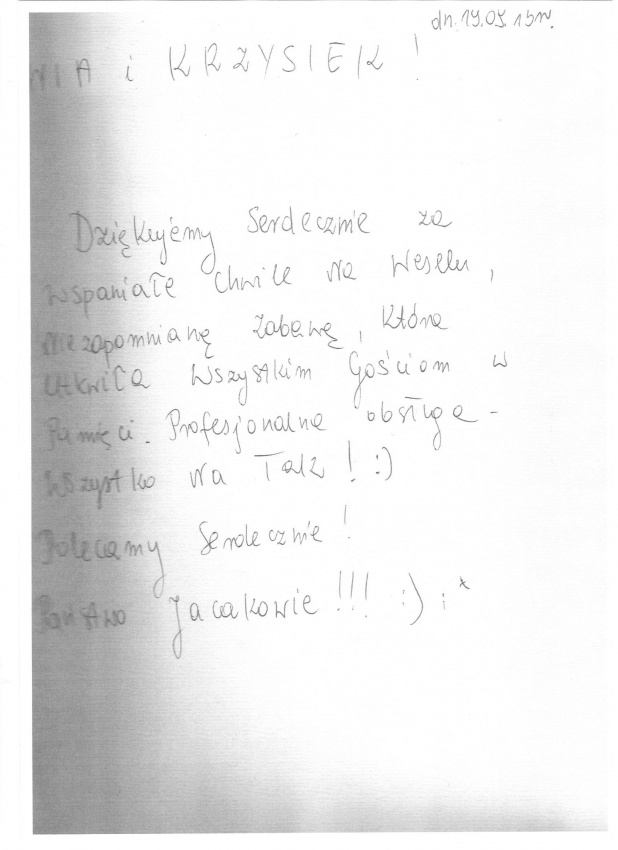 dn. 19.09.15r.
NIA i KRZYSIEK!
Dziękujemy Serdecznie za
wspaniałe chwile na Weselu,
niezapomnianą zabawę, która
utkwiła wszystkim Gościom w
Pamięci. Profesjonalna obsługa -
wszystko na Tak! :)
Polecamy Serdecznie!
Państwo Jacakowie!!! :) ;*